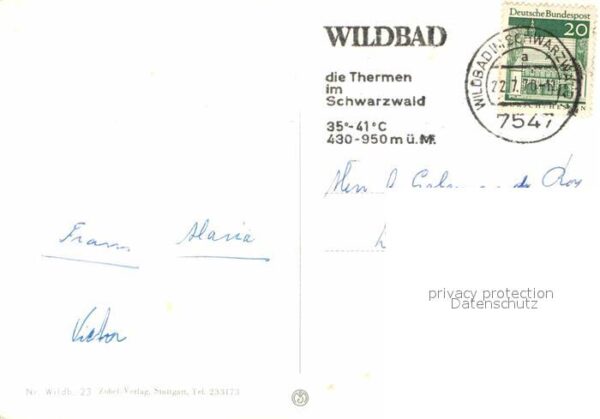 WILDBAD
die Thermen
im
Schwarzwald
35°-41°C
430-950 m ü. M.
Deutsche Bundespost
20
WILDBAD IM SCHWARZWALD
a
22.7.70-11
7547
Frans Maria
Victor
privacy protection
Datenschutz
Nr. Wildb. 23 Zobel-Verlag, Stuttgart, Tel. 233173